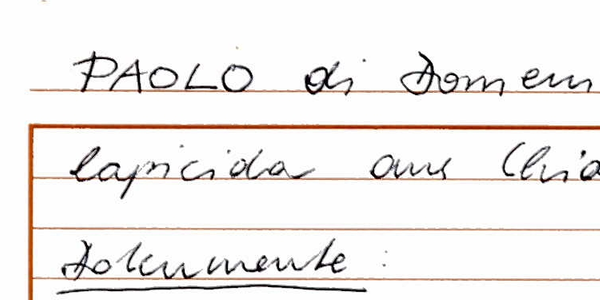 PAOLO di Domen
lapicida aus Chia
Dokumente: